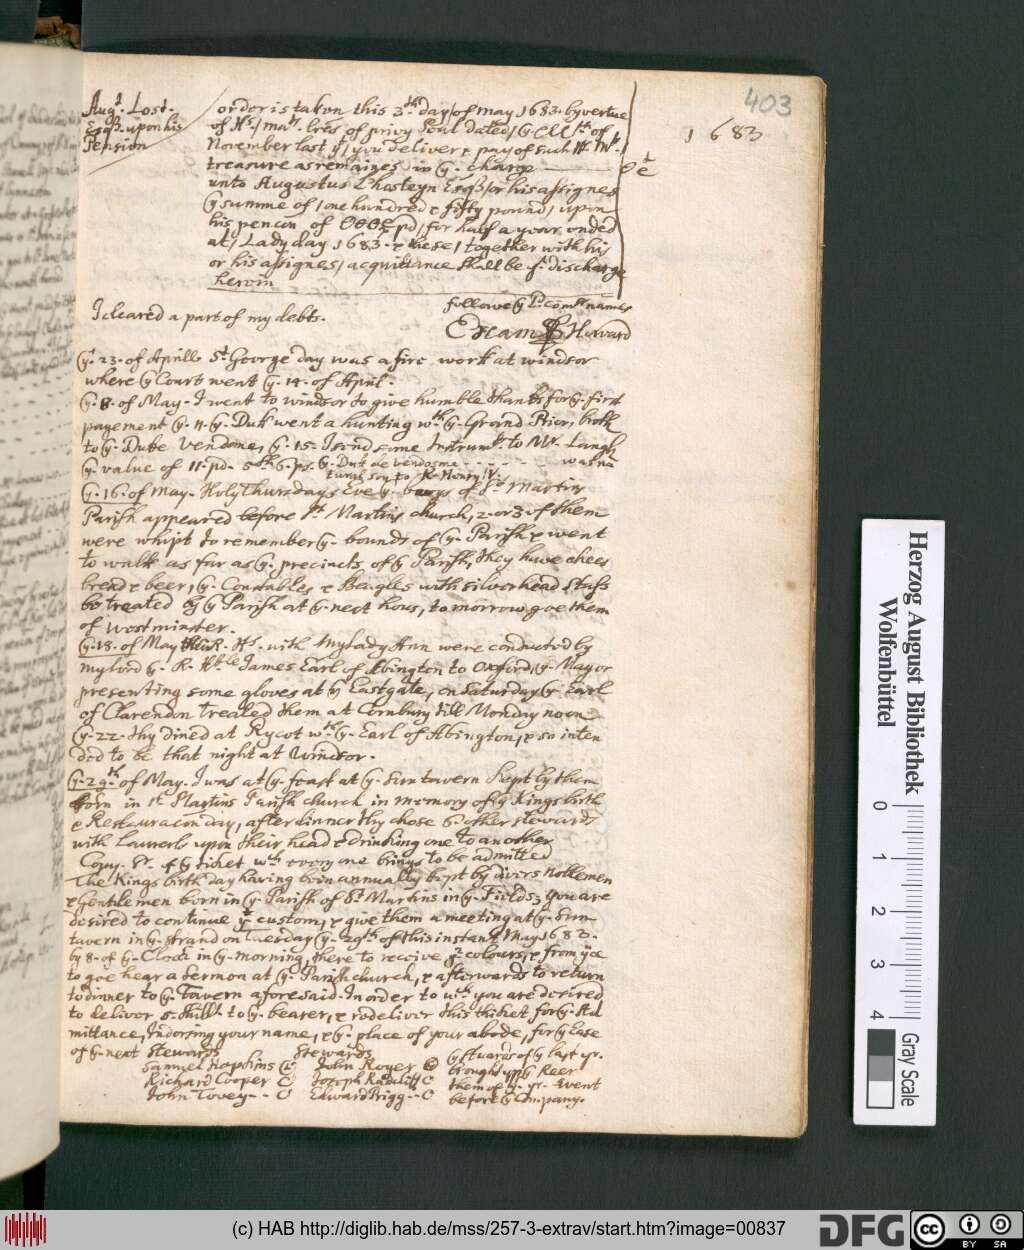 403
1683
Augt. Lost.
Esqr. upon his
Pension
order is taken this 3th. day of may 1683. by vertue
of Hs. mats. lres of privy Seal dated ye
November last yt you deliver & pay of such His Mts.
treasure as remaines in yr. charge
unto Augustus Lhosteyn Esqr or his assignes
ye summe of one hundred & fifty pound, upon
his pencon of pd, for half a year ended
at Lady day 1683. & these together with his
or his assignes acquittance shall be yr. discharge
herein
followe ye Ld. comrs names
I cleared a part of my debts.
Exam Howard
ye. 23. of Aprill St. George day was a fire work at windsor
where ye Court went ye. 14. of April.
ye. 8. of May. I went to windsor to give humble thanks for ye. first
payement ye. 11. ye. Duk went a hunting wth. ye. Grand Prior, broth
to ye. Duke Vendome, ye. 15. I send some Instrumts. to Mr. Langh
ye value of 11. pd. 5 sh. 6. ps. ye. Duk de Vendosme - - - - - was na
turall son to K. Henry IV.
ye. 16. of May. Holy Thursdays Eve ye. boays of St. Martins
Parish appeared before St. Martins church, 2. or 3. of them
were whipt to remember ye. bounds of ye. Parish & went
to walk as far as ye. precincts of ye Parish, they have chees
bread & beer, ye. Constables & Beagles with silverhead stafs
be treated by ye Parish at ye. next hous, to morrow goe them
of westminster.
ye. 18. of May R. Hs. with My Lady Ann were conducted by
my lord ye. R. Hble James Earl of Abington to Oxford, ye. Mayor
presenting some gloves at ye Eastgate, on Saturday ye. Earl
of Clarendon treated them at Cornbury till Monday noon
ye. 22. thy dined at Rycot wth. ye. Earl of Abington, & so inten
ded to be that night at Windsor.
ye. 29.th of May. I was at ye. feast at ye. Sun tavern kept by them
born in St. Martins Parish church in memory of ye Kings birth
& Restauracon day, after dinner thy chose 6. other stewards
with Laurels upon their head & Drinking one to another
Copy. &c. of ye ticket wch every one brings to be admitted
The Kings birth day having bein annually kept by divers Noblemen
& Gentlemen born in ye. Parish of St. Martins in ye. Fields; you are
desired to continue yt custom, & give them a meeting at ye. Sun
tavern in ye. strand on Tuesday ye. 29th. of this instant May 1683.
by 8. of ye. Clock in ye. morning, there to receive yr colours, & from yce
to goe hear a Sermon at ye. Parish church, & afterwards to return
to dinner to ye. Tavern aforesaid. In order to wch. you are desired
to deliver 5. shill. to ye. bearer, & to deliver this thiket for ye. Ad
mittance, Indorsing your name, & ye. place of your abode, for ye Ease
of ye. next Stewards
Stewards
Samuel Hopkins
Richard Cooper
John Tovey - -
John Royer
Joseph Radcliff
Edward Prigg - -
ye stuards of ye last yr.
brought up ye Beer
them of ys. yr. went
before ye Company.
Herzog August Bibliothek
Wolfenbüttel
0 1 2 3 4
Gray Scale
(c) HAB http://diglib.hab.de/mss/257-3-extrav/start.htm?image=00837
DFG
CC BY SA